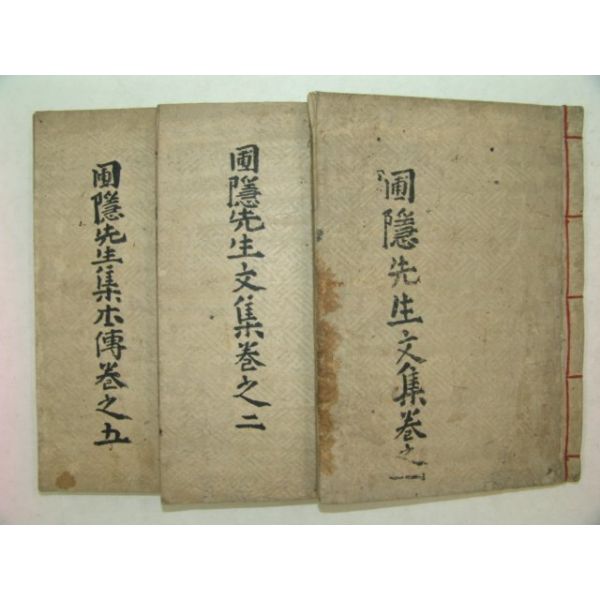 圃隱先生文集卷之一
圃隱先生文集卷之二
圃隱先生集本傳卷之九